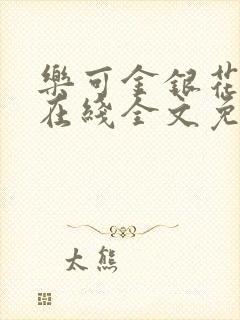 樂可金銀花
在綫全文免
太熊